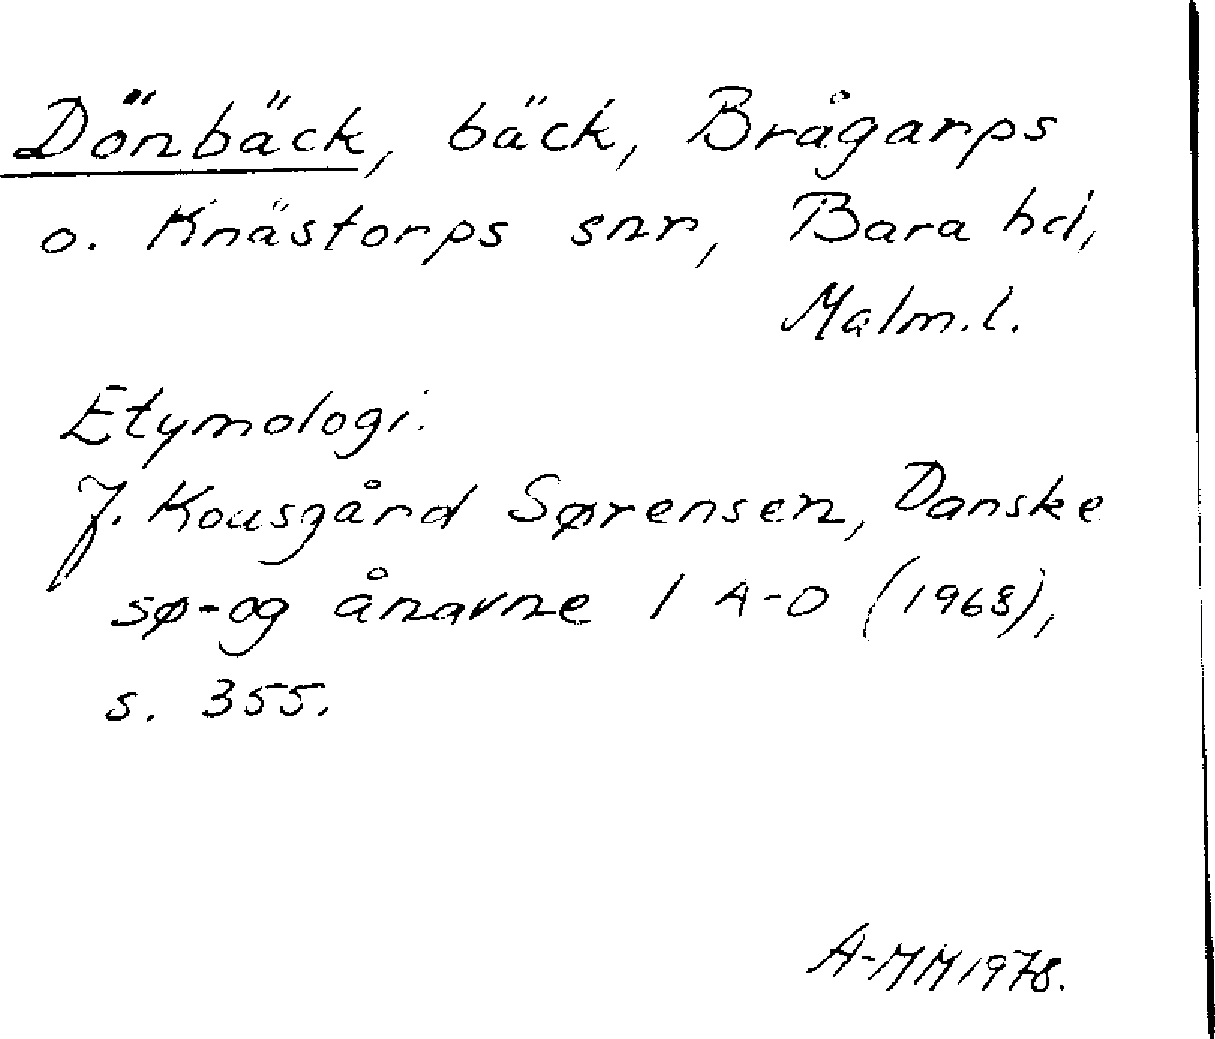 Dönbäck, bäck, Brågarps
o. Knästorps snr, Bara hd,
Malm.l.
Etymologi:
J. Kousgård Sørensen, Danske
sø- og ånavne 1 A-D (1968),
s. 355.
A-MM 1978.